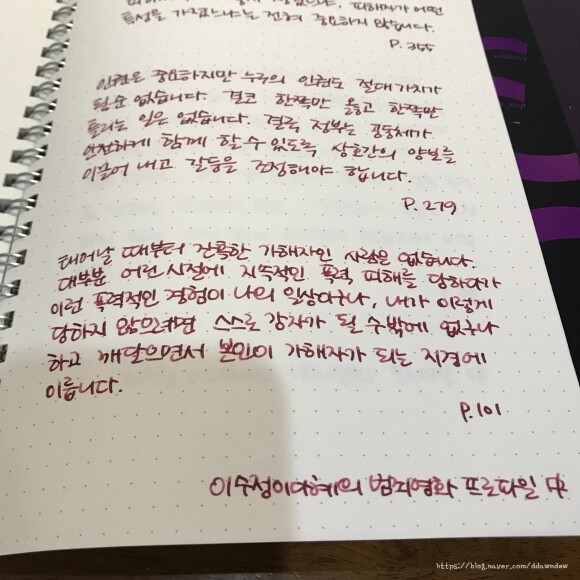 특성을 가졌느냐는 전혀 중요하지 않습니다.
P. 355
인권은 중요하지만 누구의 인권도 절대 가치가
될 수 없습니다. 결코 한쪽만 옳고 한쪽만
틀리는 일은 없습니다. 결국 정부는 공동체가
안전하게 함께 할 수 있도록 상호간의 양보를
이끌어 내고 갈등을 조정해야 합니다.
P. 279
태어날 때부터 잔혹한 가해자인 사람은 없습니다.
대부분 어린 시절에 지속적인 폭력 피해를 당하다가
이런 폭력적인 경험이 나의 일상이구나, 내가 이렇게
당하지 않으려면 스스로 강자가 될 수밖에 없구나
하고 깨달으면서 본인이 가해자가 되는 지경에
이릅니다.
P. 101
이수정이다혜의 범죄영화 프로파일 中
https://blog.naver.com/ddawndew